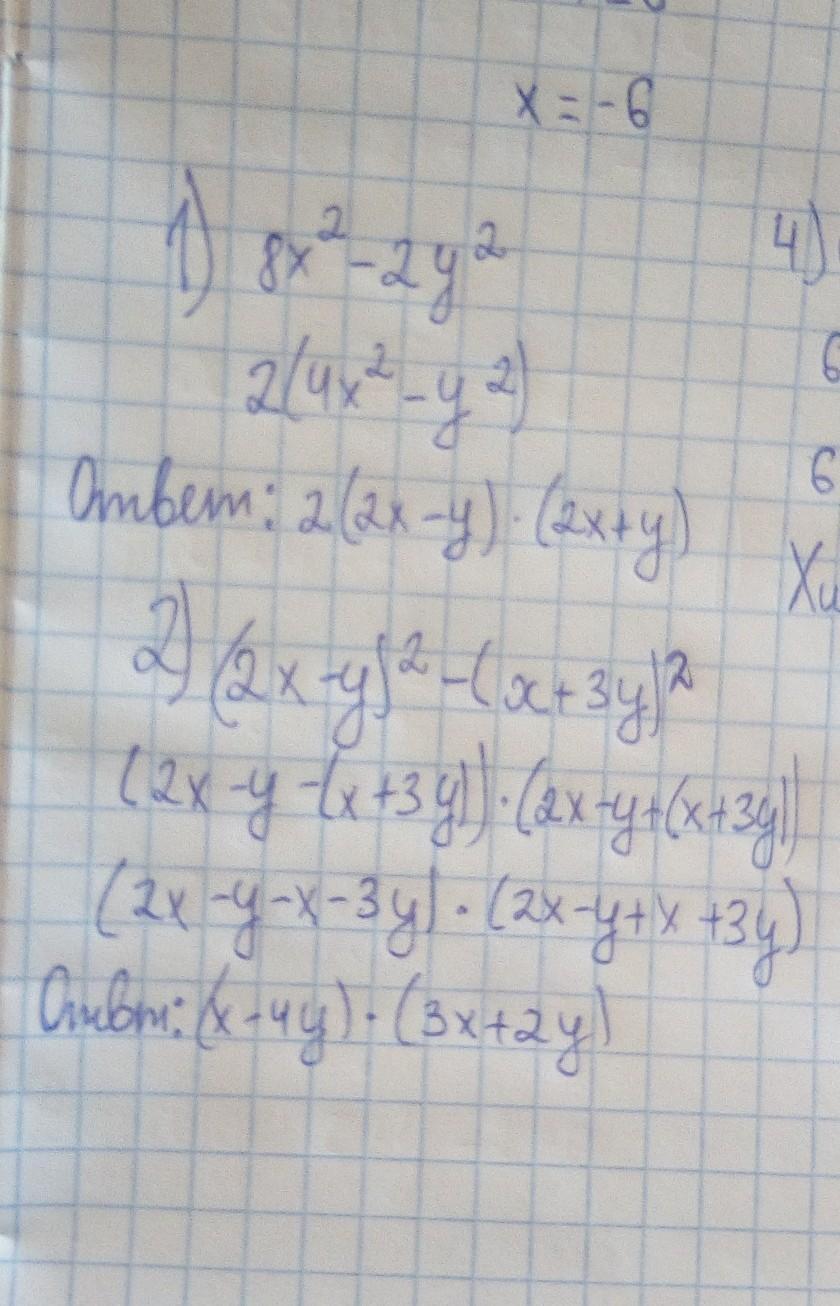 x = -6
1) 8x² - 2y²
2(4x² - y²)
Ответ: 2(2x - y) · (2x + y)
2) (2x - y)² - (x + 3y)²
(2x - y - (x + 3y)) · (2x - y + (x + 3y))
(2x - y - x - 3y) · (2x - y + x + 3y)
Ответ: (x - 4y) · (3x + 2y)
4)
6
6